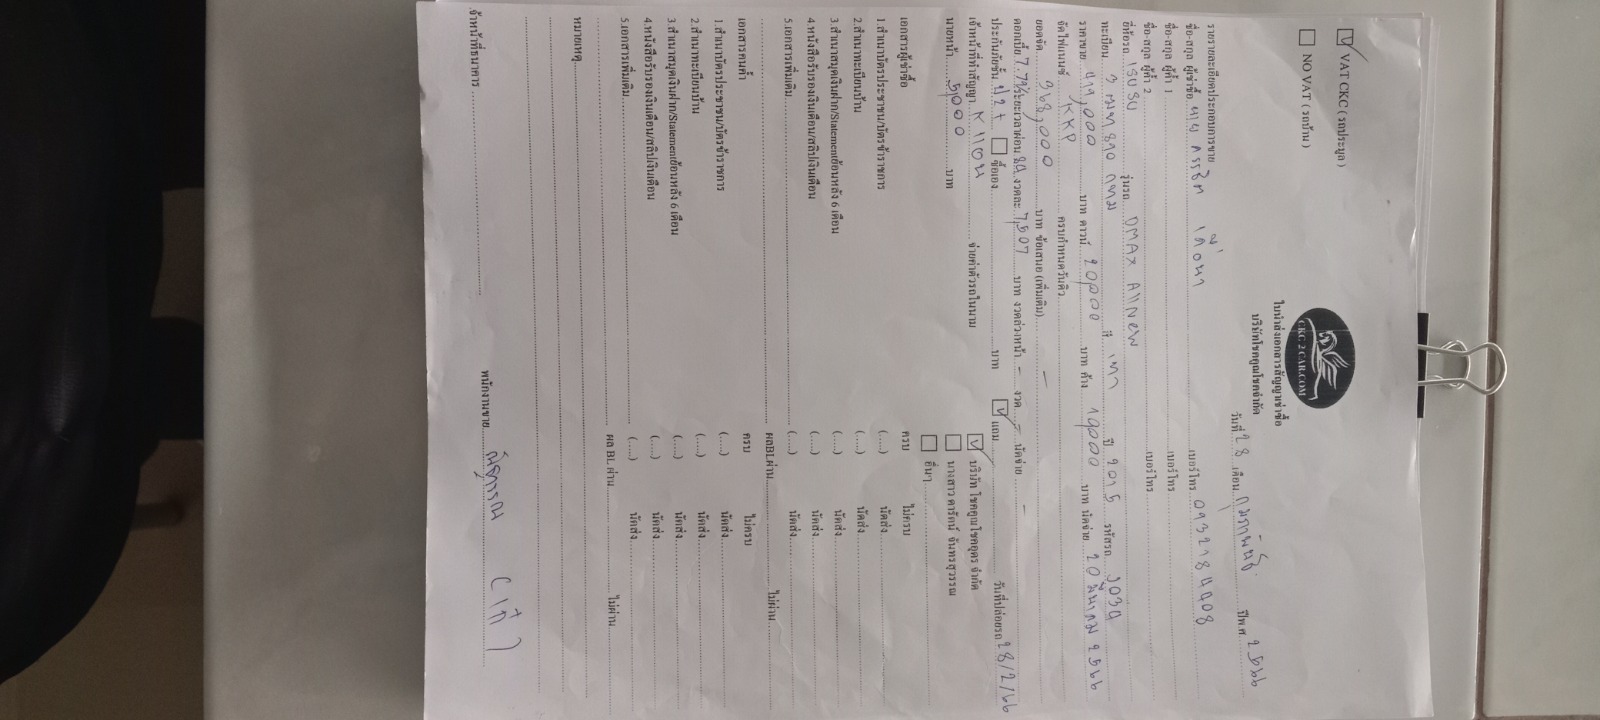 ☑ VAT CKC ( รถประมูล )
☐ NO VAT ( รถบ้าน )
CKC 2 CAR.COM
ใบนำส่งเอกสารสัญญาเช่าซื้อ
บริษัทโชคคูณโชคจำกัด
วันที่ 28 เดือน กุมภาพันธ์ ปีพ.ศ. 2566
รายรายละเอียดประกอบการขาย
ชื่อ-สกุล ผู้เช่าซื้อ นาย เบอร์โทร 0932184408
ชื่อ-สกุล ผู้ค้ำ 1 เบอร์โทร
ชื่อ-สกุล ผู้ค้ำ 2 เบอร์โทร
ยี่ห้อรถ ISUSU รุ่นรถ DMAX AllNew สี เทา ปี 2015 รหัสรถ
ทะเบียน กทม
ราคาขาย บาท ดาวน์ 20,000 บาท ค้าง 19,000 บาท นัดจ่าย 20 มีนาคม 2566
จัดไฟแนนซ์ KKP ครบกำหนดวันคิว
ยอดจัด 368,000 บาท ข้อเสนอ (เพิ่มเติม) -
ดอกเบี้ย ระยะเวลาผ่อน 84 งวดละ 7,507 บาท งวดล่วงหน้า - งวด - นัดจ่าย -
ประกันภัยชั้น ป 2+ ☐ ซื้อเอง บาท ☑ แถม วันที่ปล่อยรถ 28/2/66
เจ้าหน้าที่ทำสัญญา จ่ายค่าตัวรถในนาม ☑ บริษัท โชคคูณโชคอุดร จำกัด
นายหน้า 5,000 บาท ☐ นางสาว ดารัตน์ จันทรสุวรรณ
☐ อื่นๆ
เอกสารผู้เช่าซื้อ ครบ ไม่ครบ
1.สำเนาบัตรประชาชน/บัตรข้าราชการ (....) นัดส่ง
2.สำเนาทะเบียนบ้าน (....) นัดส่ง
3.สำเนาสมุดเงินฝาก/Statementย้อนหลัง 6 เดือน (....) นัดส่ง
4.หนังสือรับรองเงินเดือน/สลิปเงินเดือน (....) นัดส่ง
5.เอกสารเพิ่มเติม (....) นัดส่ง
ผลBLผ่าน ไม่ผ่าน
เอกสารคนค้ำ ครบ ไม่ครบ
1.สำเนาบัตรประชาชน/บัตรข้าราชการ (....) นัดส่ง
2.สำเนาทะเบียนบ้าน (....) นัดส่ง
3.สำเนาสมุดเงินฝาก/Statementย้อนหลัง 6 เดือน (....) นัดส่ง
4.หนังสือรับรองเงินเดือน/สลิปเงินเดือน (....) นัดส่ง
5.เอกสารเพิ่มเติม (....) นัดส่ง
ผล BL ผ่าน ไม่ผ่าน
หมายเหตุ
เจ้าหน้าที่ธนาคาร พนักงานขาย